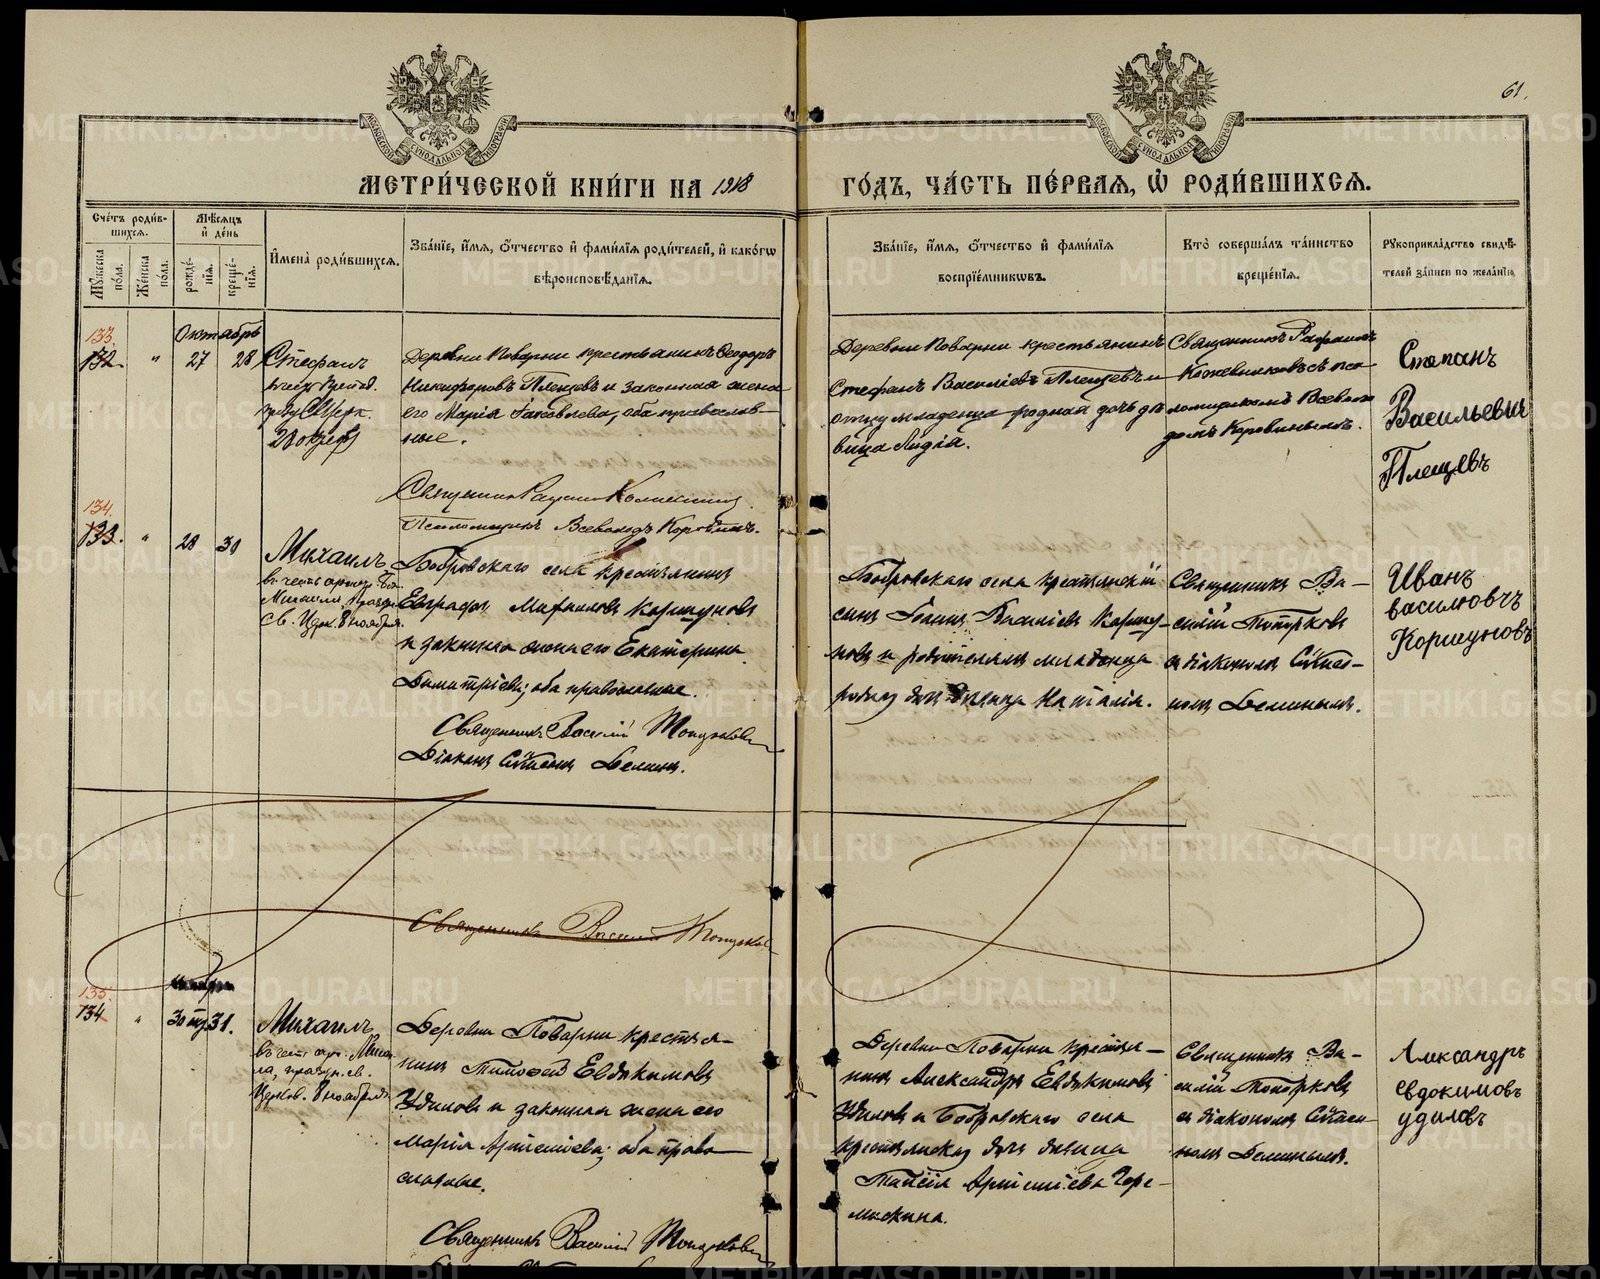 61.
МЕТРИ́ЧЕСКОЙ КНИ́ГИ НА 1918
ГО́ДЪ, ЧА́СТЬ ПЕ́РВАЯ, Ѡ РОДИ́ВШИХСЯ.
Сче́тъ роди́вшихся.
Му́жеска по́ла.
Же́нска по́ла.
Мѣ́сяцъ и де́нь
рожде́нїя.
креще́нїя.
И҆мена̀ роди́вшихся.
Зва́нїе, и҆́мя, о҆́тчество и҆ фами́лїя роди́телей, и҆ како́гѡ
вѣроисповѣ́данїя.
Зва́нїе, и҆́мя, о҆́тчество и҆ фами́лїя
воспрїе́мникѡвъ.
Кто̀ соверша́лъ та́инство
креще́нїя.
Рꙋкоприкла́дство свидѣ́-
телей за́писи по жела́нїю
Октябрь
133.
132.
"
27
28
Стефанъ
28 октяб.
Деревни Поварни крестьянинъ Ѳеодоръ
Никифоровъ Плещевъ и законная жена
его Марія Іаковлева, оба православ-
ные.
Священник Рафаил Кожевников
Псаломщикъ Всеволодъ Коровинъ.
Деревни Поварни крестьянинъ
Стефанъ Василіевъ Плещевъ и
отцу младенца родная дочь дѣ-
вица Лидія.
Священникъ Рафаилъ
Кожевниковъ съ пса-
ломщикомъ Всеволо-
домъ Коровинымъ.
Степанъ
Васильевич
Плещевъ
134.
133.
"
28
30
Михаилъ
въ честь архист. Бож.
Михаила, праздн.
св. Церк. 8 ноября.
Бобровскаго села крестьянинъ
Евграфъ Коршуновъ
и законная жена его Екатерина
Димитріева; оба православные.
Священникъ Василій Топорковъ
Діаконъ Стефанъ Беминъ.
Бобровскаго села крестьянскій
сынъ Іоаннъ Василіевъ Коршу-
новъ и родителямъ младенца
родная дочь дѣвица Наталія.
Священникъ Ва-
силій Топорковъ
съ діакономъ Стефа-
номъ Беминымъ.
Иванъ
василювчъ
Коршуновъ
Священникъ Василій Топорков
135.
134
"
30
31.
Михаилъ
въ честь арх. Михаи-
ла, праздн. св.
Церков. 8 ноября
Деревни Поварни крестья-
нинъ Тимоѳей Евдокимовъ
Удиловъ и законная жена его
Марія Артеміева; оба право-
славные.
Священникъ Василій Топорковъ
Деревни Поварни крестья-
нинъ Александръ Евдокимовъ
Удиловъ и Бобровскаго села
крестьянская дочь дѣвица
Таисія Артеміева Чере-
мискина.
Священникъ Ва-
силій Топорковъ
съ діакономъ Стефа-
номъ Беминымъ.
Александръ
евдокимовъ
удиловъ
METRIKI.GASO-URAL.RU